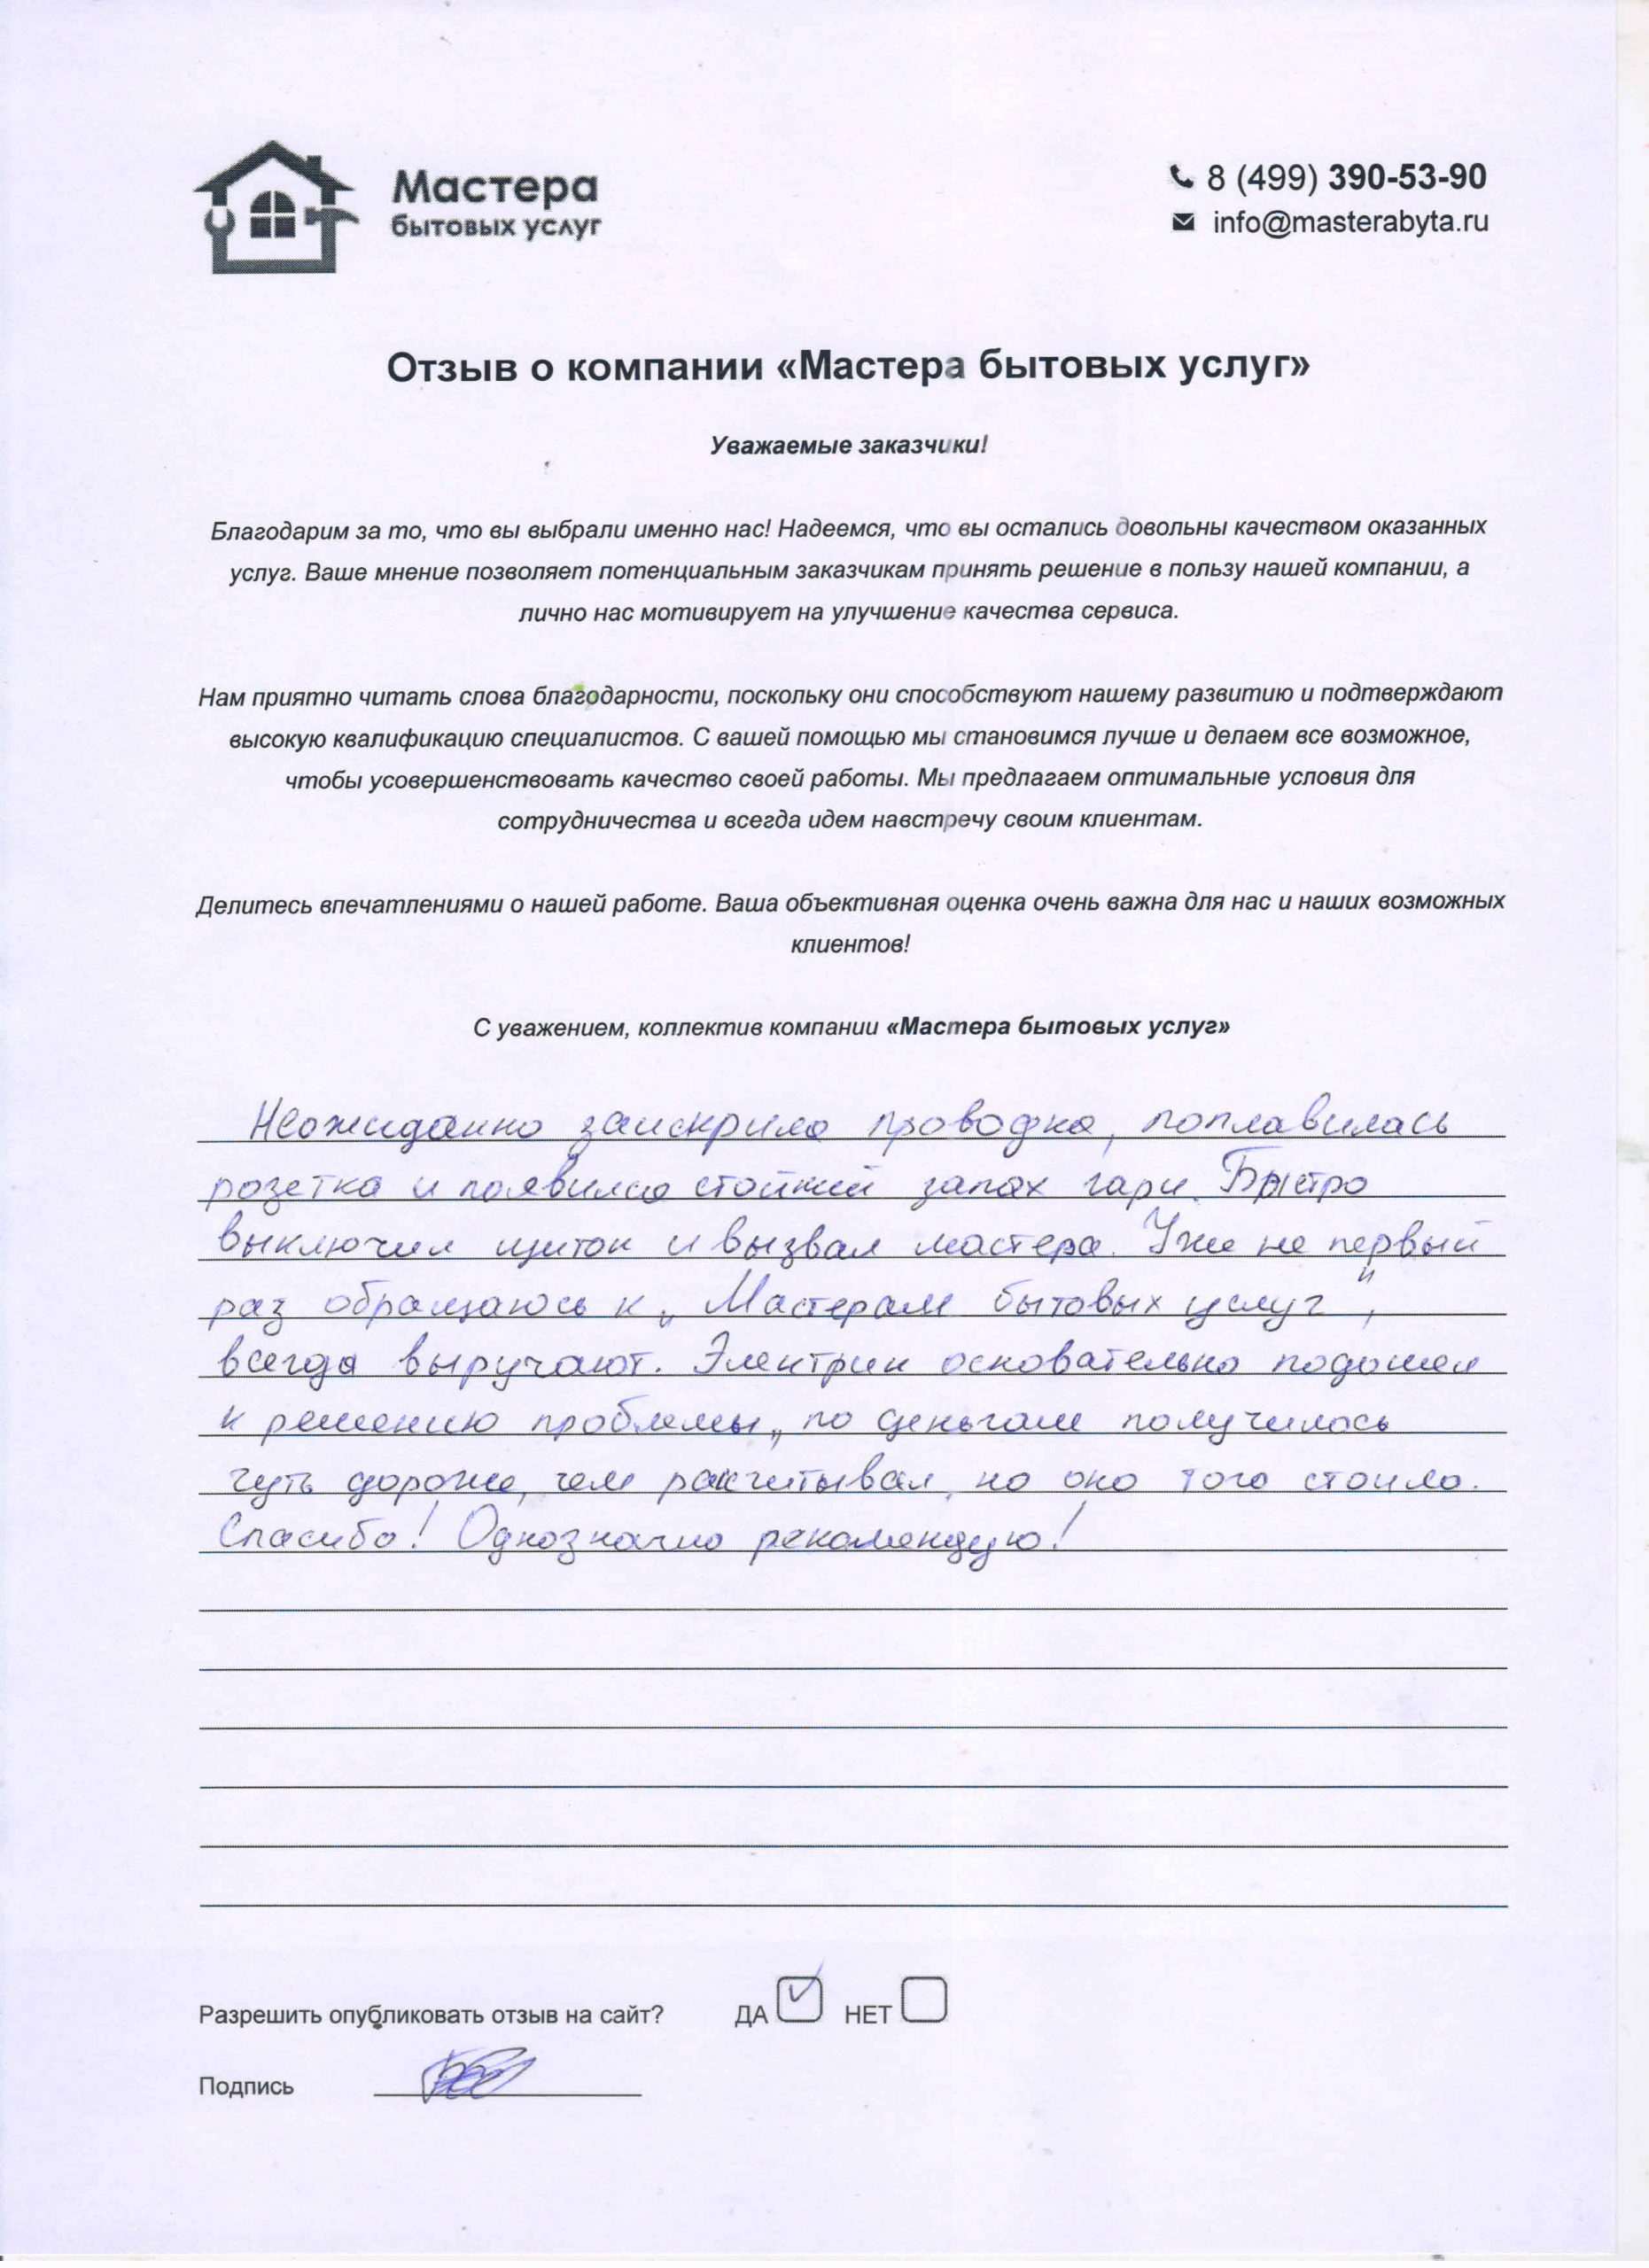 Мастера
бытовых услуг
8 (499) 390-53-90
info@masterabyta.ru
Отзыв о компании «Мастера бытовых услуг»
Уважаемые заказчики!
Благодарим за то, что вы выбрали именно нас! Надеемся, что вы остались довольны качеством оказанных
услуг. Ваше мнение позволяет потенциальным заказчикам принять решение в пользу нашей компании, а
лично нас мотивирует на улучшение качества сервиса.
Нам приятно читать слова благодарности, поскольку они способствуют нашему развитию и подтверждают
высокую квалификацию специалистов. С вашей помощью мы становимся лучше и делаем все возможное,
чтобы усовершенствовать качество своей работы. Мы предлагаем оптимальные условия для
сотрудничества и всегда идем навстречу своим клиентам.
Делитесь впечатлениями о нашей работе. Ваша объективная оценка очень важна для нас и наших возможных
клиентов!
С уважением, коллектив компании «Мастера бытовых услуг»
Неожиданно заискрила проводка, поплавилась
розетка и появился стойкий запах гари. Быстро
выключил щиток и вызвал мастера. Уже не первый
раз обращаюсь к „Мастерам бытовых услуг",
всегда выручают. Электрик основательно подошел
к решению проблемы, по деньгам получилось
чуть дороже, чем расчитывал, но оно того стоило.
Спасибо! Однозначно рекомендую!
Разрешить опубликовать отзыв на сайт? ДА НЕТ
Подпись